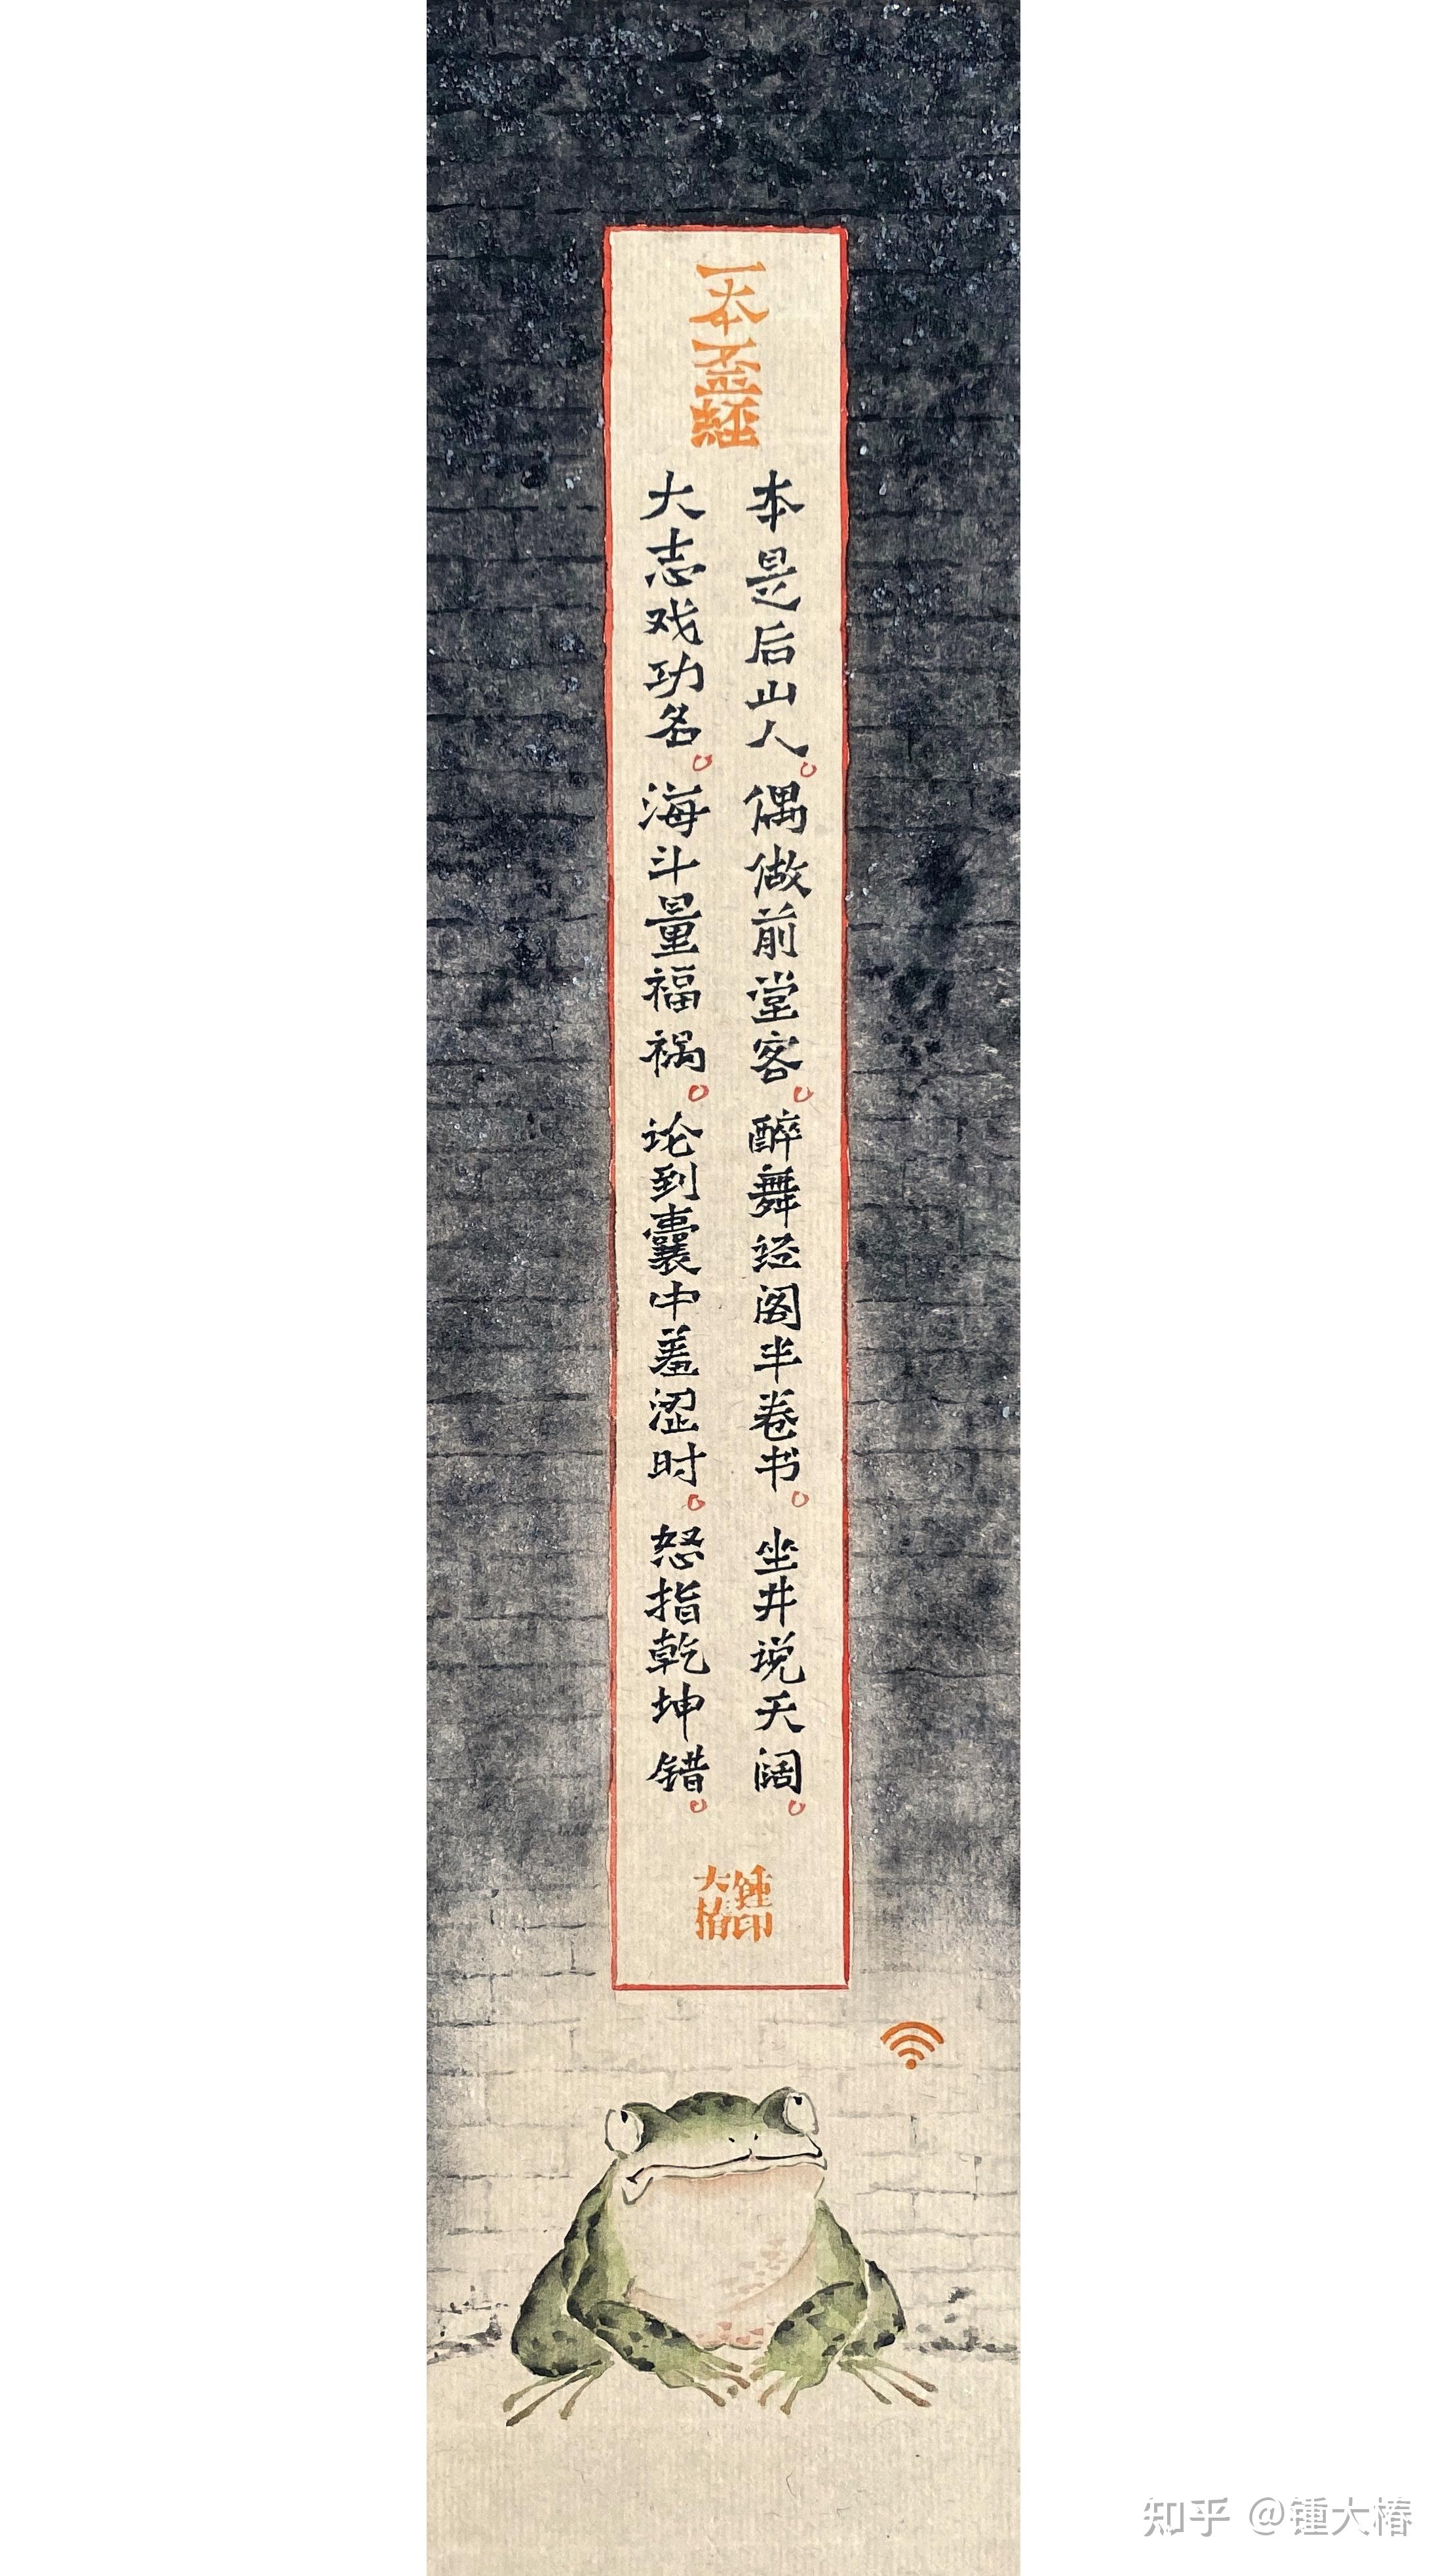 一本歪經
本是后山人。偶做前堂客。醉舞经阁半卷书。坐井说天阔。
大志戏功名。海斗量福祸。论到囊中羞涩时。怒指乾坤错。
锺大椿印
知乎 @锺大椿